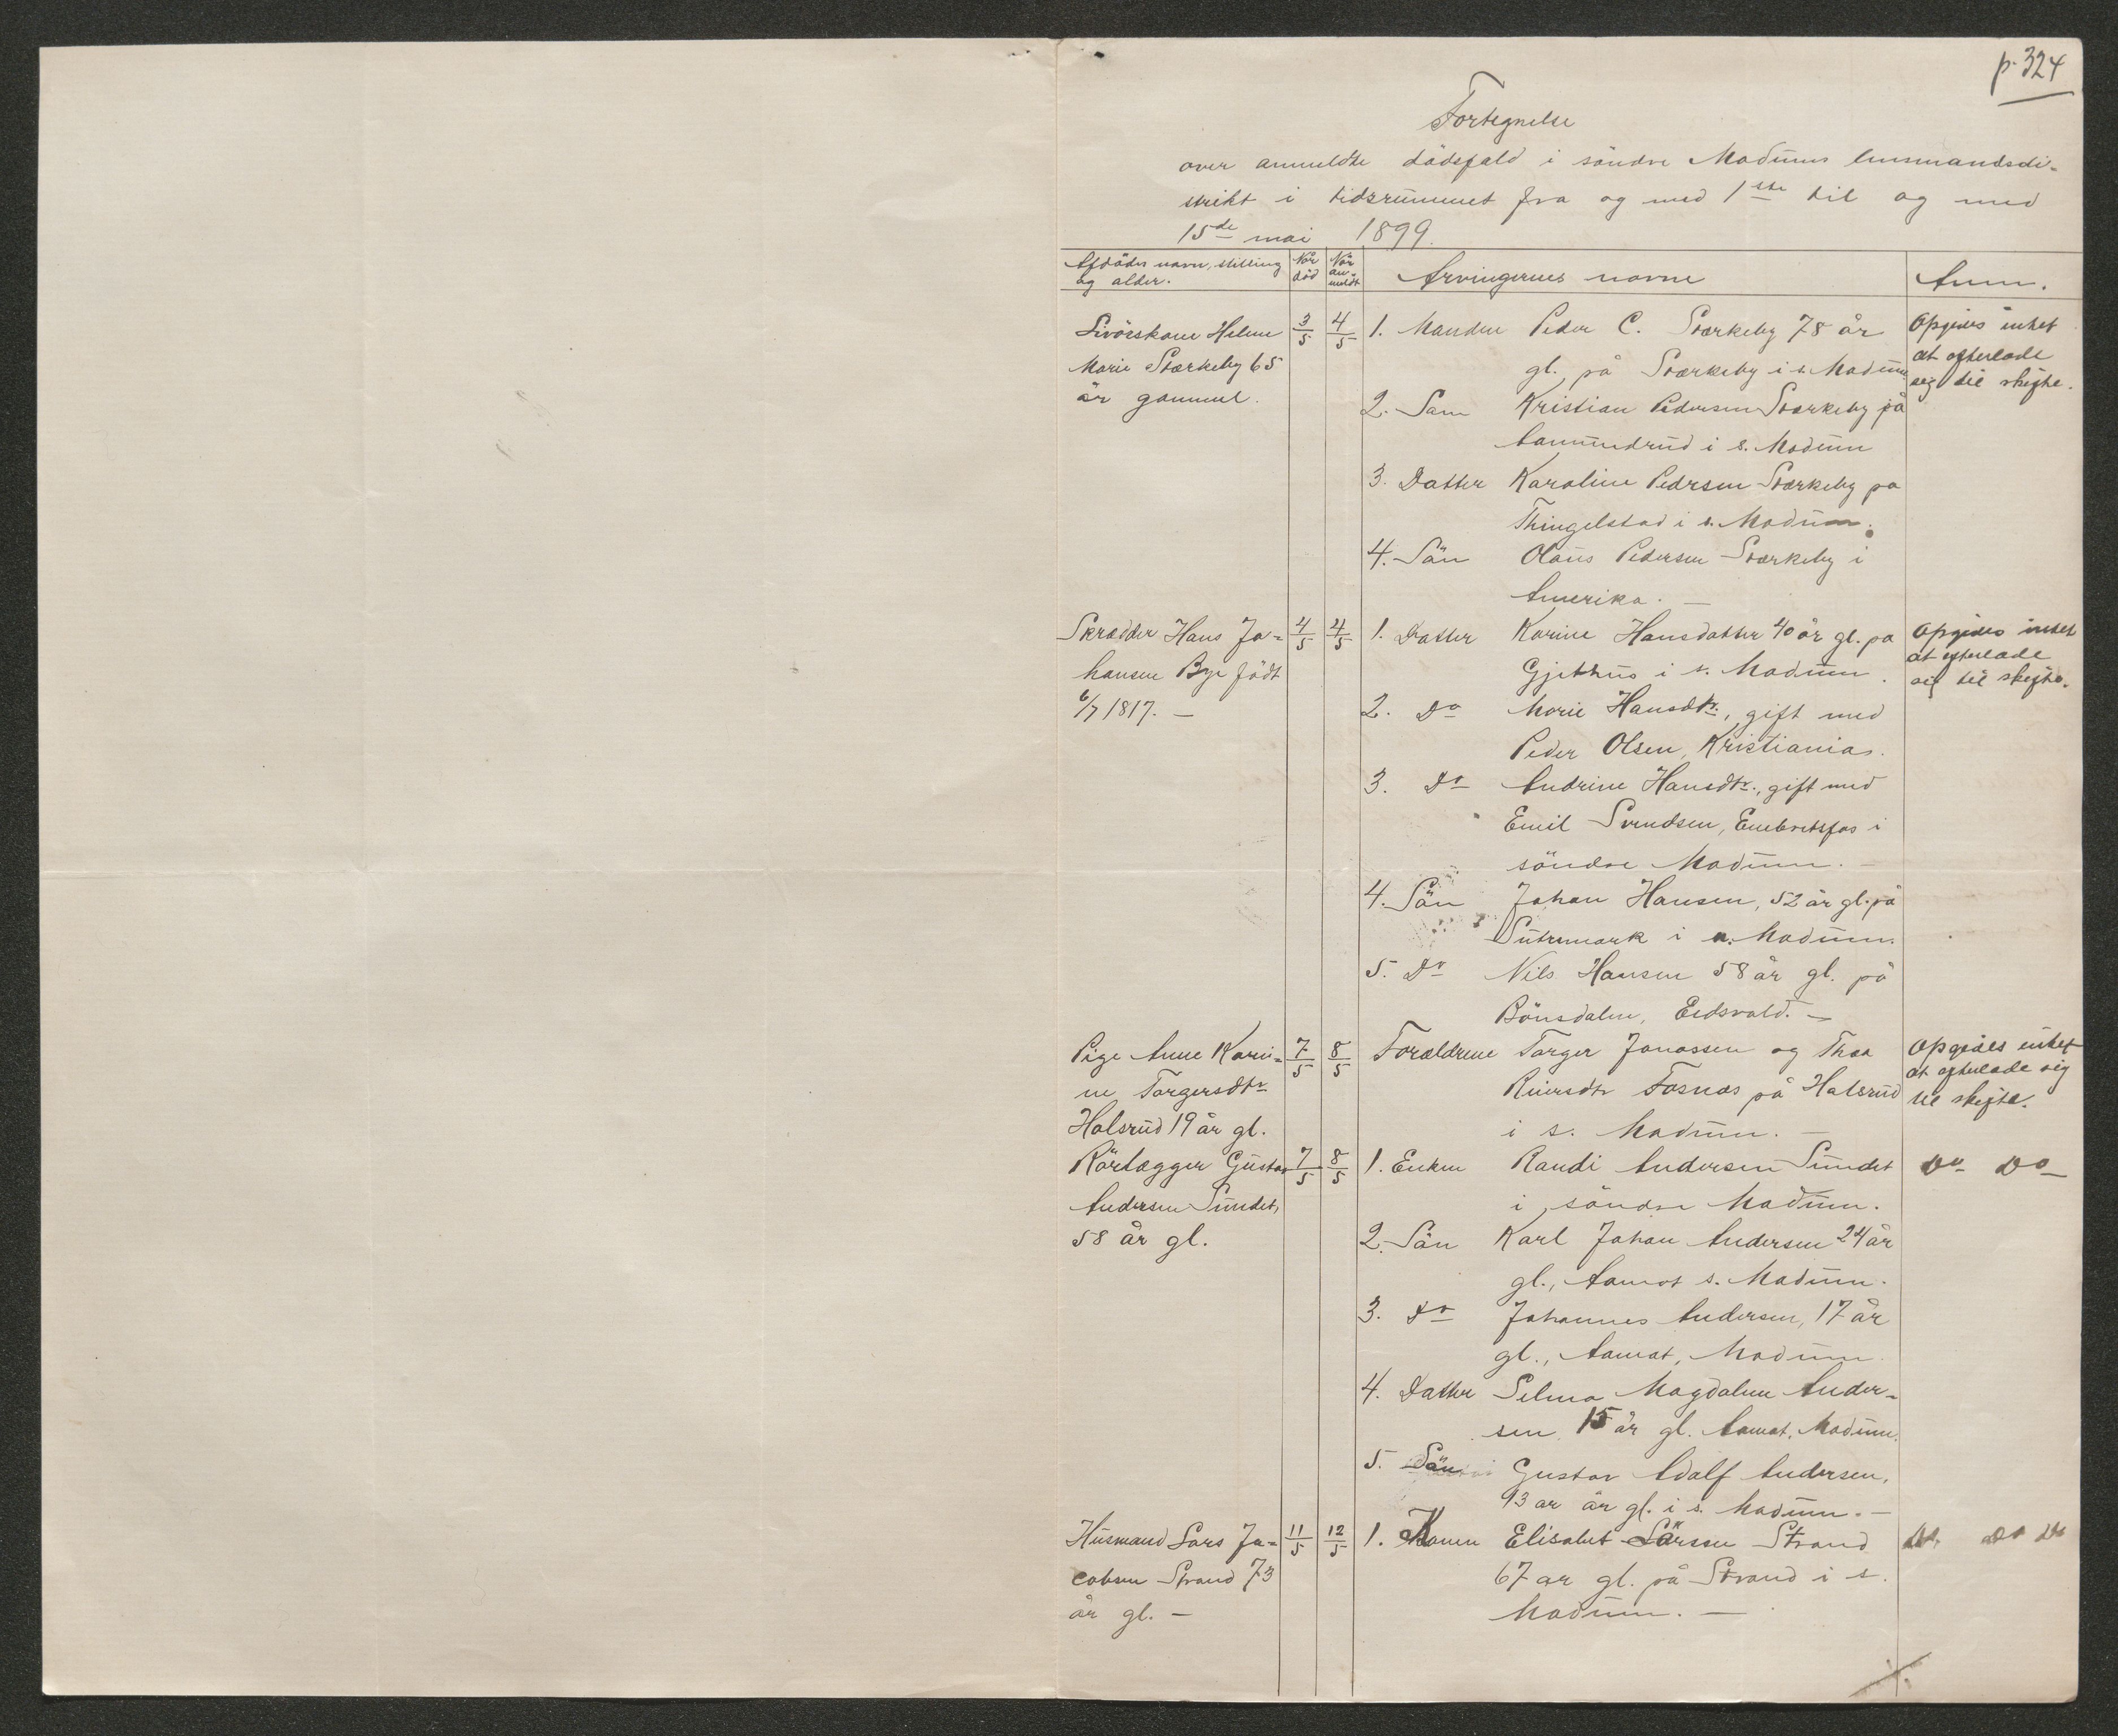 p. 324
Fortegnelse
over anmeldte dödsfald i söndre Modums lensmandsdi-
strikt i tidsrummet fra og med 1ste til og med
15de mai 1899.
Afdödes navn, stilling og alder.
Når död
Når an-meldt
Arvingernes navne
Anm.
Livörskone Helene
Marie Stærkeby 65
år gammel.
3/5
4/5
1. Manden Peder C. Stærkeby 78 år
gl. på Stærkeby i s. Modum
2. Søn Kristian Pedersen Stærkeby på
i s. Modum
3. Datter Karoline Pedrsen Stærkeby pa
Thingelstad i s. Modum.
4. Sön Olaus Pedersen Stærkeby i
Amerika. —
Opgives intet
at efterlade
sig til skifte.
Skrædder Hans Jo-
hansen Bye födt
6/7 1817. —
4/5
4/5
1. Datter Karine Hansdatter 40 år gl. pa
Gjethus i s. Modum.
2. Do Marie Hansdtr., gift med
Peder Olsen, Kristiania.
3. Do Andrine Hansdtr., gift med
Emil Svendsen, Embretsfos i
söndre Modum. —
4. Sön Johan Hansen, 52 år gl. på
i n. Modum.
5. Do Nils Hansen 58 år gl. på
Bönsdalen, Eidsvold. —
Opgives intet
at efterlade
sig til skifte.
Pige Anne Kari-
ne Torgersdtr
Halsrud 19 år gl.
7/5
8/5
Forældrene Torger Jonassen og Thea
Fosnæs på Halsrud
i s. Modum. —
Opgives intet
at efterlade sig
til skifte.
Rörlægger Gustav
Andersen Sundet,
58 år gl.
7/5
8/5
1. Enken Randi Andersen Sundet
i söndre Modum.
2. Sön Karl Johan Andersen 24 år
gl., Aamot s. Modum.
3. Do Johannes Andersen, 17 år
gl., Aamot, Modum
4. Datter Selma Magdalene Ander-
sen 15 år gl. Aamot, Modum.
5. Sön Gustav Adolf Andersen,
13 ar år gl. i s. Modum. —
Do Do
Husmand Lars Ja-
cobsen Strand 73
år gl. —
11/5
12/5
1. Konen Elisabet Larssen Strand
67 ar gl. på Strand i s.
Modum. —
Do Do Do